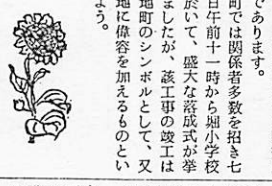 であります。
町では関係者多数を招き七
日午前十一時から堀小学校
於いて、盛大な落成式が挙
ましたが、該工事の竣工は
地町のシンボルとして、又
地に偉容を加えるものとい
よう。